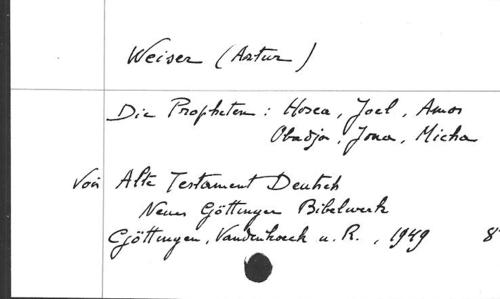 Weiser (Artur)
Die Propheten : Hosea, Joel, Amos
Obadja, Jona, Micha
Voir Alte Testament Deutsch
Neues Göttinger Bibelwerk
Göttingen, Vandenhoeck u. R., 1949 8°